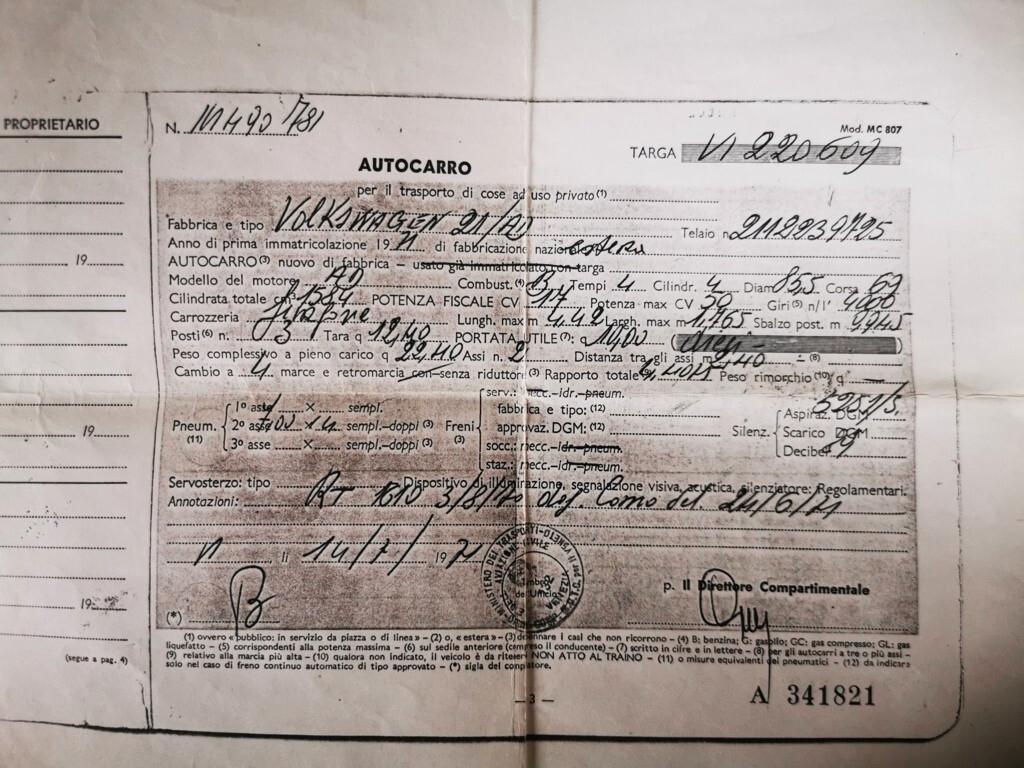 PROPRIETARIO
19
19
19
(segue a pag. 4)
N. M490781
Mod. MC 807
TARGA VI 220609
AUTOCARRO
per il trasporto di cose ad uso privato(1)
Fabbrica e tipo VOLKSWAGEN 21/AD Telaio n. 2112239725
Anno di prima immatricolazione 1971 di fabbricazione nazionale estera
AUTOCARRO(3) nuovo di fabbrica – usato già immatricolato con targa
Modello del motore AD Combust.(4) B Tempi 4 Cilindr. 4 Diam 85,5 Corsa 69
Cilindrata totale cm³ 1584 POTENZA FISCALE CV 17 Potenza max CV 50 Giri(5) n/1' 4000
Carrozzeria Lungh. max m 4,42 Largh. max m 1,765 Sbalzo post. m
Posti(6) n. 3 Tara q 12,40 PORTATA UTILE(7): q 10,00 (dieci)
Peso complessivo a pieno carico q 22,40 Assi n. 2 Distanza tra gli assi m 2,40 – (8)
Cambio a 4 marce e retromarcia con–senza riduttore(3) Rapporto totale(9) Peso rimorchio(10) q —
serv.: mecc.–idr.–pneum.
Pneum. (11)
1º asse × sempl.
2º asse × 4 sempl.–doppi (3)
3º asse × sempl.–doppi (3)
Freni (3)
fabbrica e tipo: (12)
approvaz. DGM: (12)
socc.: mecc.–idr.–pneum.
staz.: mecc.–idr.–pneum.
Silenz.
Aspiraz. DGM
Scarico DGM
Decibel
Servosterzo: tipo Dispositivo di illuminazione, segnalazione visiva, acustica, silenziatore: Regolamentari.
Annotazioni: 3/8/70 Como del 24/6/71
VI li 14/7/1971
MINISTERO DEI TRASPORTI
AVIAZIONE CIVILE
p. Il Direttore Compartimentale
(*)
(1) ovvero «pubblico: in servizio da piazza o di linea» – (2) o, «estera» – (3) depennare i casi che non ricorrono – (4) B: benzina; G: gasolio; GC: gas compresso; GL: gas
liquefatto – (5) corrispondenti alla potenza massima – (6) sul sedile anteriore (compreso il conducente) – (7) scritto in cifre e in lettere – (8) per gli autocarri a tre o più assi –
(9) relativo alla marcia più alta – (10) qualora non indicato, il veicolo è da ritenersi NON ATTO AL TRAINO – (11) o misure equivalenti dei pneumatici – (12) da indicare
solo nel caso di freno continuo automatico di tipo approvato – (*) sigla del compilatore.
– 3 –
A 341821